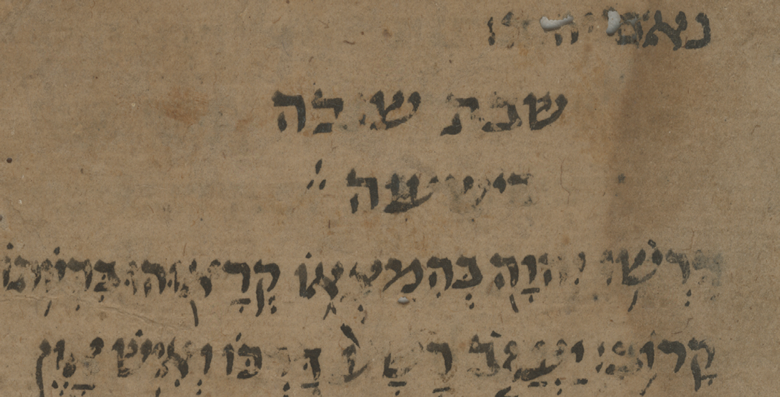 נאם יהוה
שבת שובה
בישעיה
דִּרְשׁוּ יְהוָה בְּהִמָּצְאוֹ קְרָאֻהוּ בִּהְיֹתוֹ
קָרוֹב׃ יַעֲזֹב רָשָׁע דַּרְכּוֹ וְאִישׁ אָוֶן